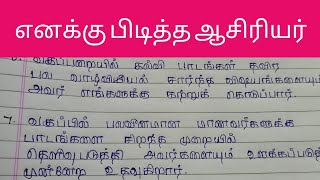 எனக்கு பிடித்த ஆசிரியர்
6. வகுப்பறையில் கல்வி பாடங்கள் தவிர
பல வாழ்வியல் சார்ந்த விஷயங்களையும்
அவர் எங்களுக்கு கற்றுக் கொடுப்பார்.
7. வகுப்பில் பலவீனமான மாணவர்களுக்கு
பாடங்களை சிறந்த முறையில்
தெளிவுபடுத்தி அவர்களையும்
முன்னேற உதவுகிறார்.